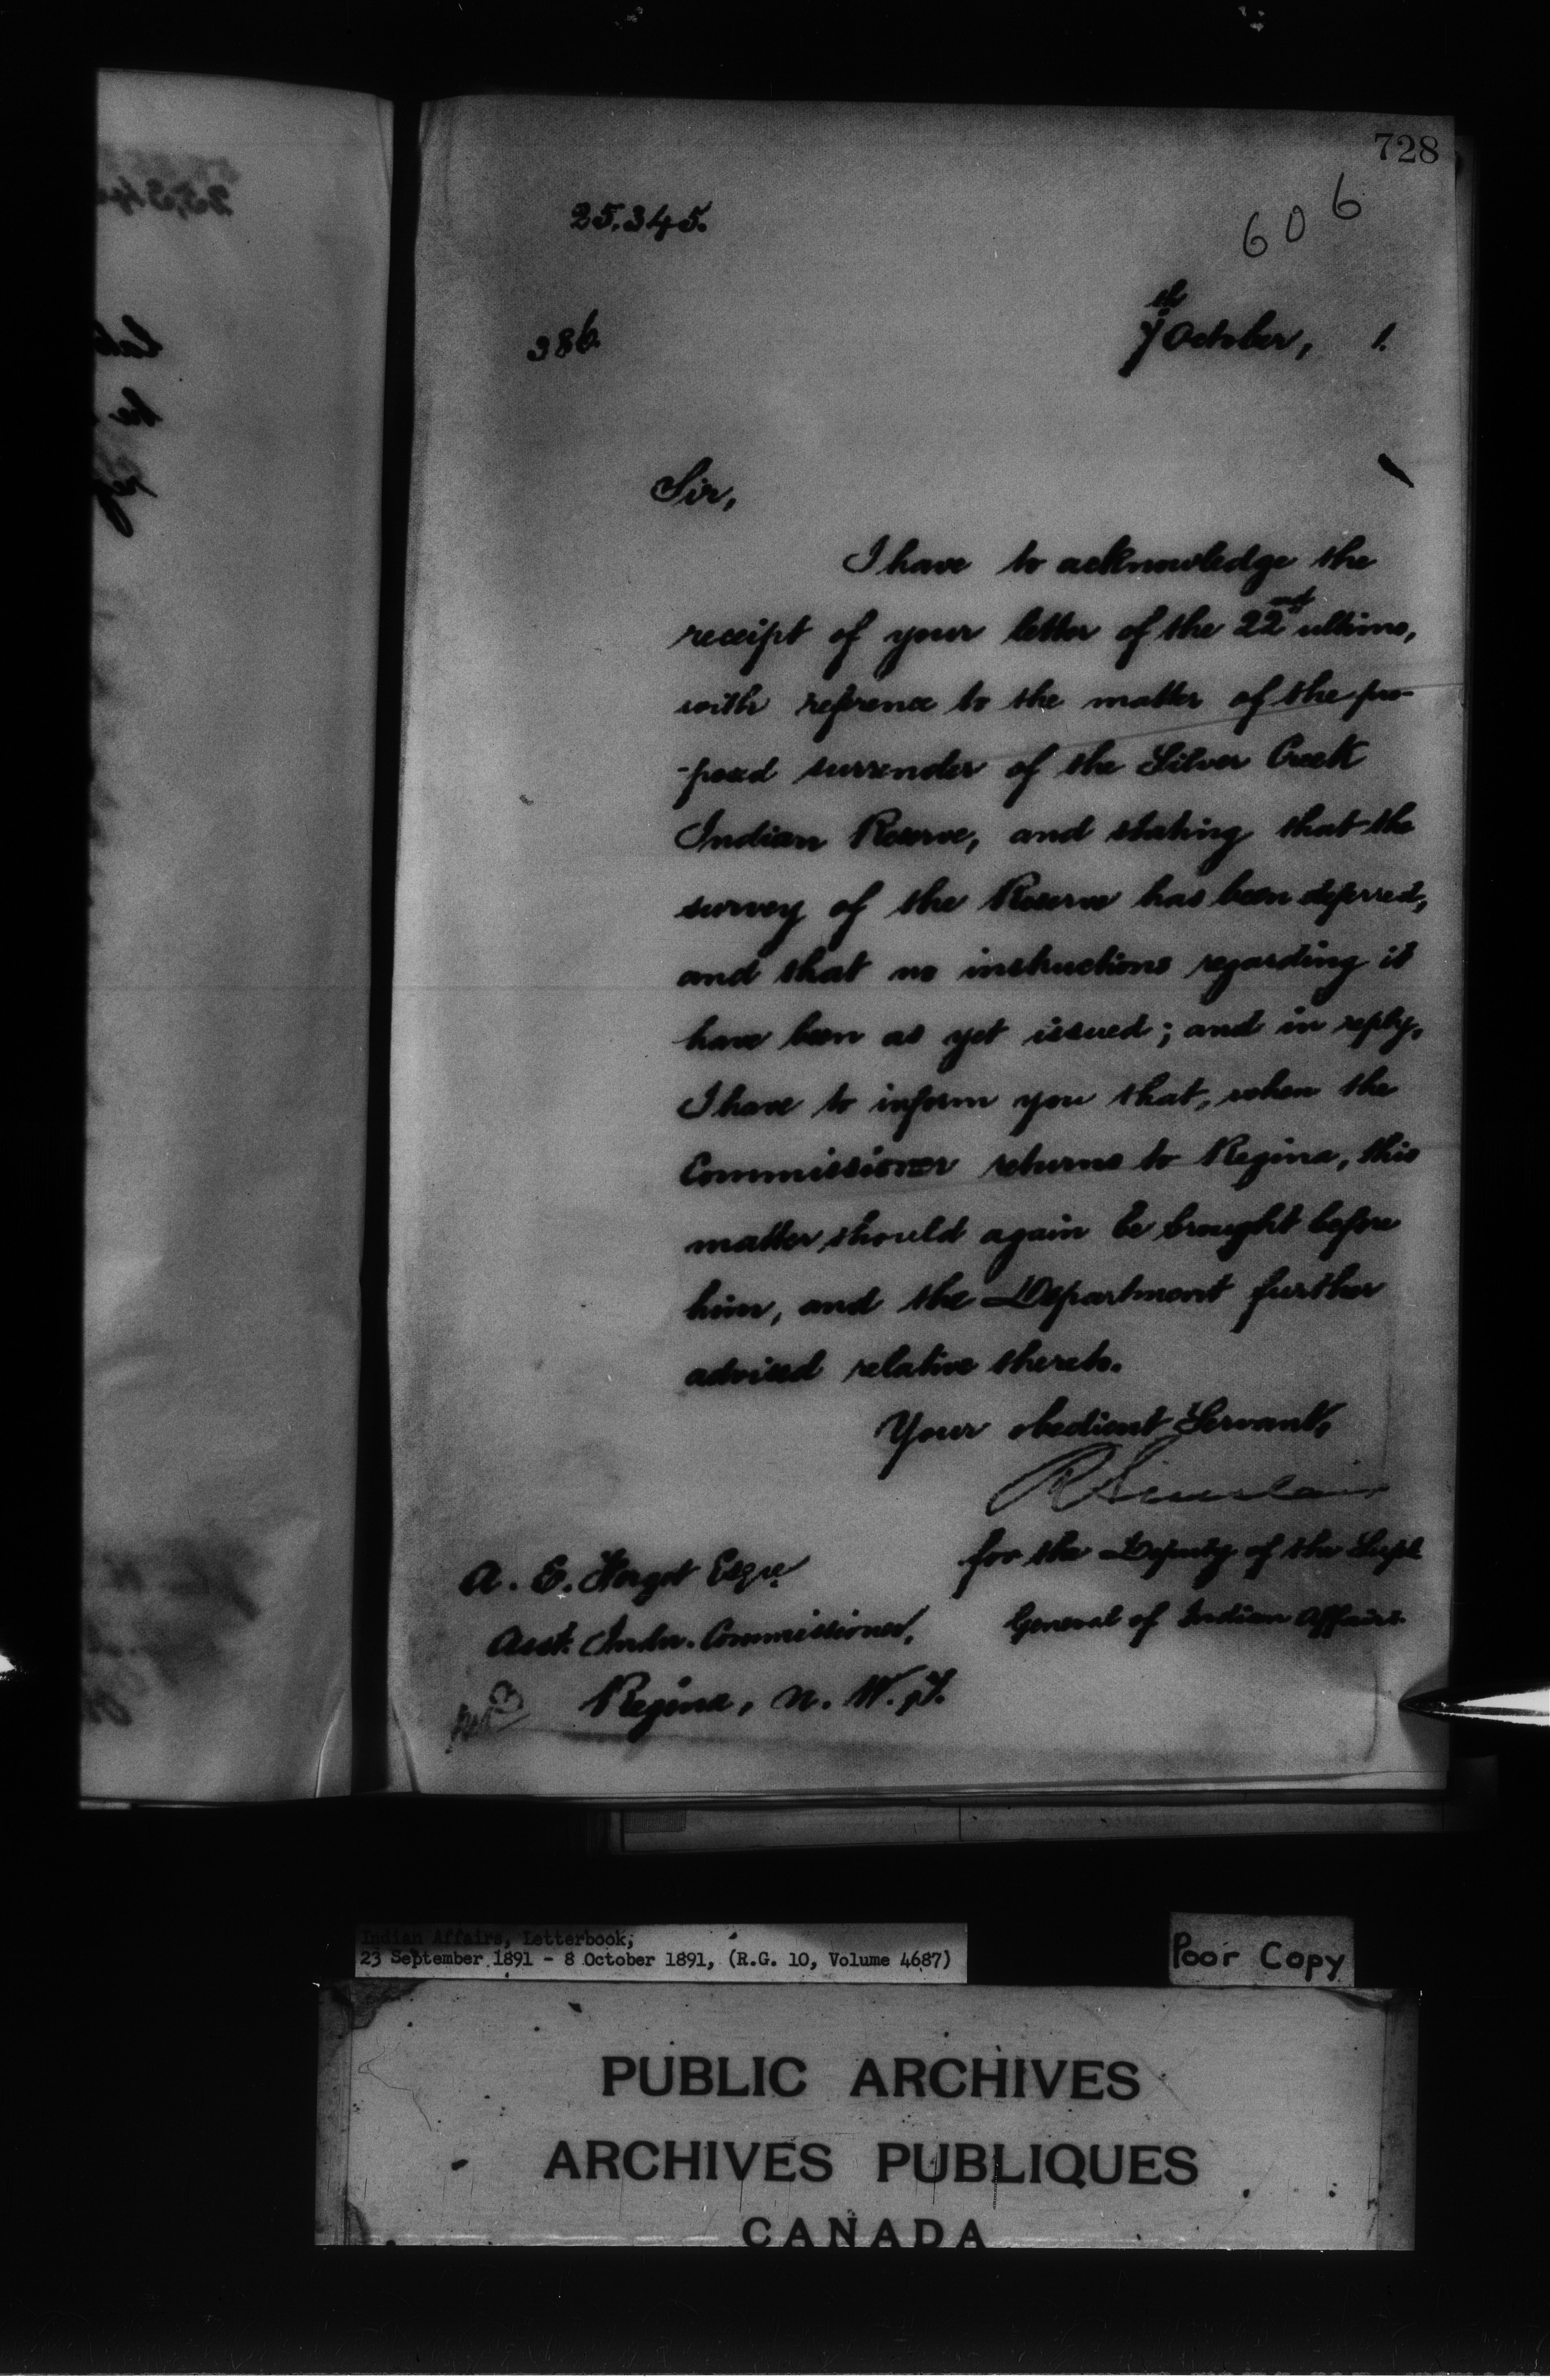 728
25.345.
606
386.
7th October, 1.
Sir,
I have to acknowledge the
receipt of your letter of the 22nd ultimo,
with reference to the matter of the pro-
-posed surrender of the Silver Creek
Indian Reserve, and stating that the
survey of the Reserve has been deferred,
and that no instructions regarding it
have been as yet issued; and in reply,
I have to inform you that, when the
Commissioner returns to Regina, this
matter should again be brought before
him, and the Department further
advised relative thereto.
Your obedient Servant,
R Sinclair
for the Deputy of the Supt
General of Indian Affairs.
A. E. Forget Esqre
Asst. Indn. Commissioner,
Regina, N. W. T.
Indian Affairs, Letterbook,
23 September 1891 - 8 October 1891, (R.G. 10, Volume 4687)
Poor Copy
PUBLIC ARCHIVES
ARCHIVES PUBLIQUES
CANADA